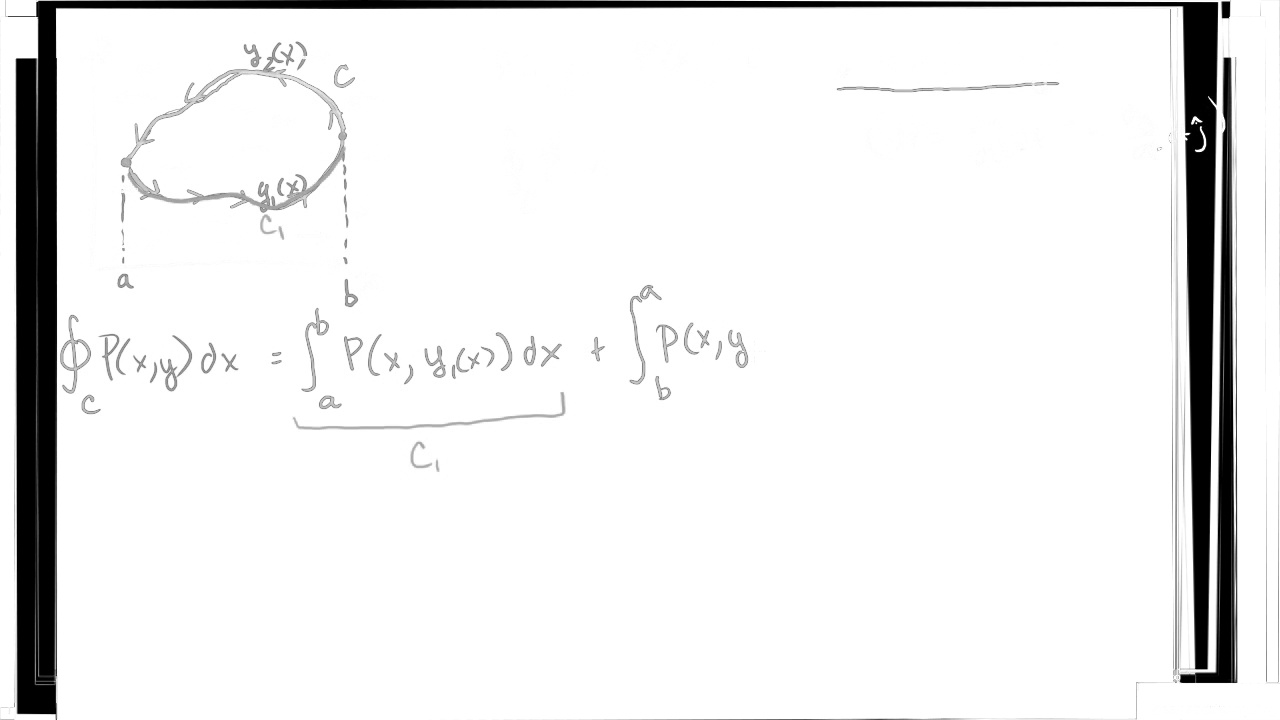 y₂(x)
C
y₁(x)
C₁
a
b
∮_C P(x,y) dx = ∫_a^b P(x, y₁(x)) dx + ∫_b^a P(x, y
C₁
ĵ)